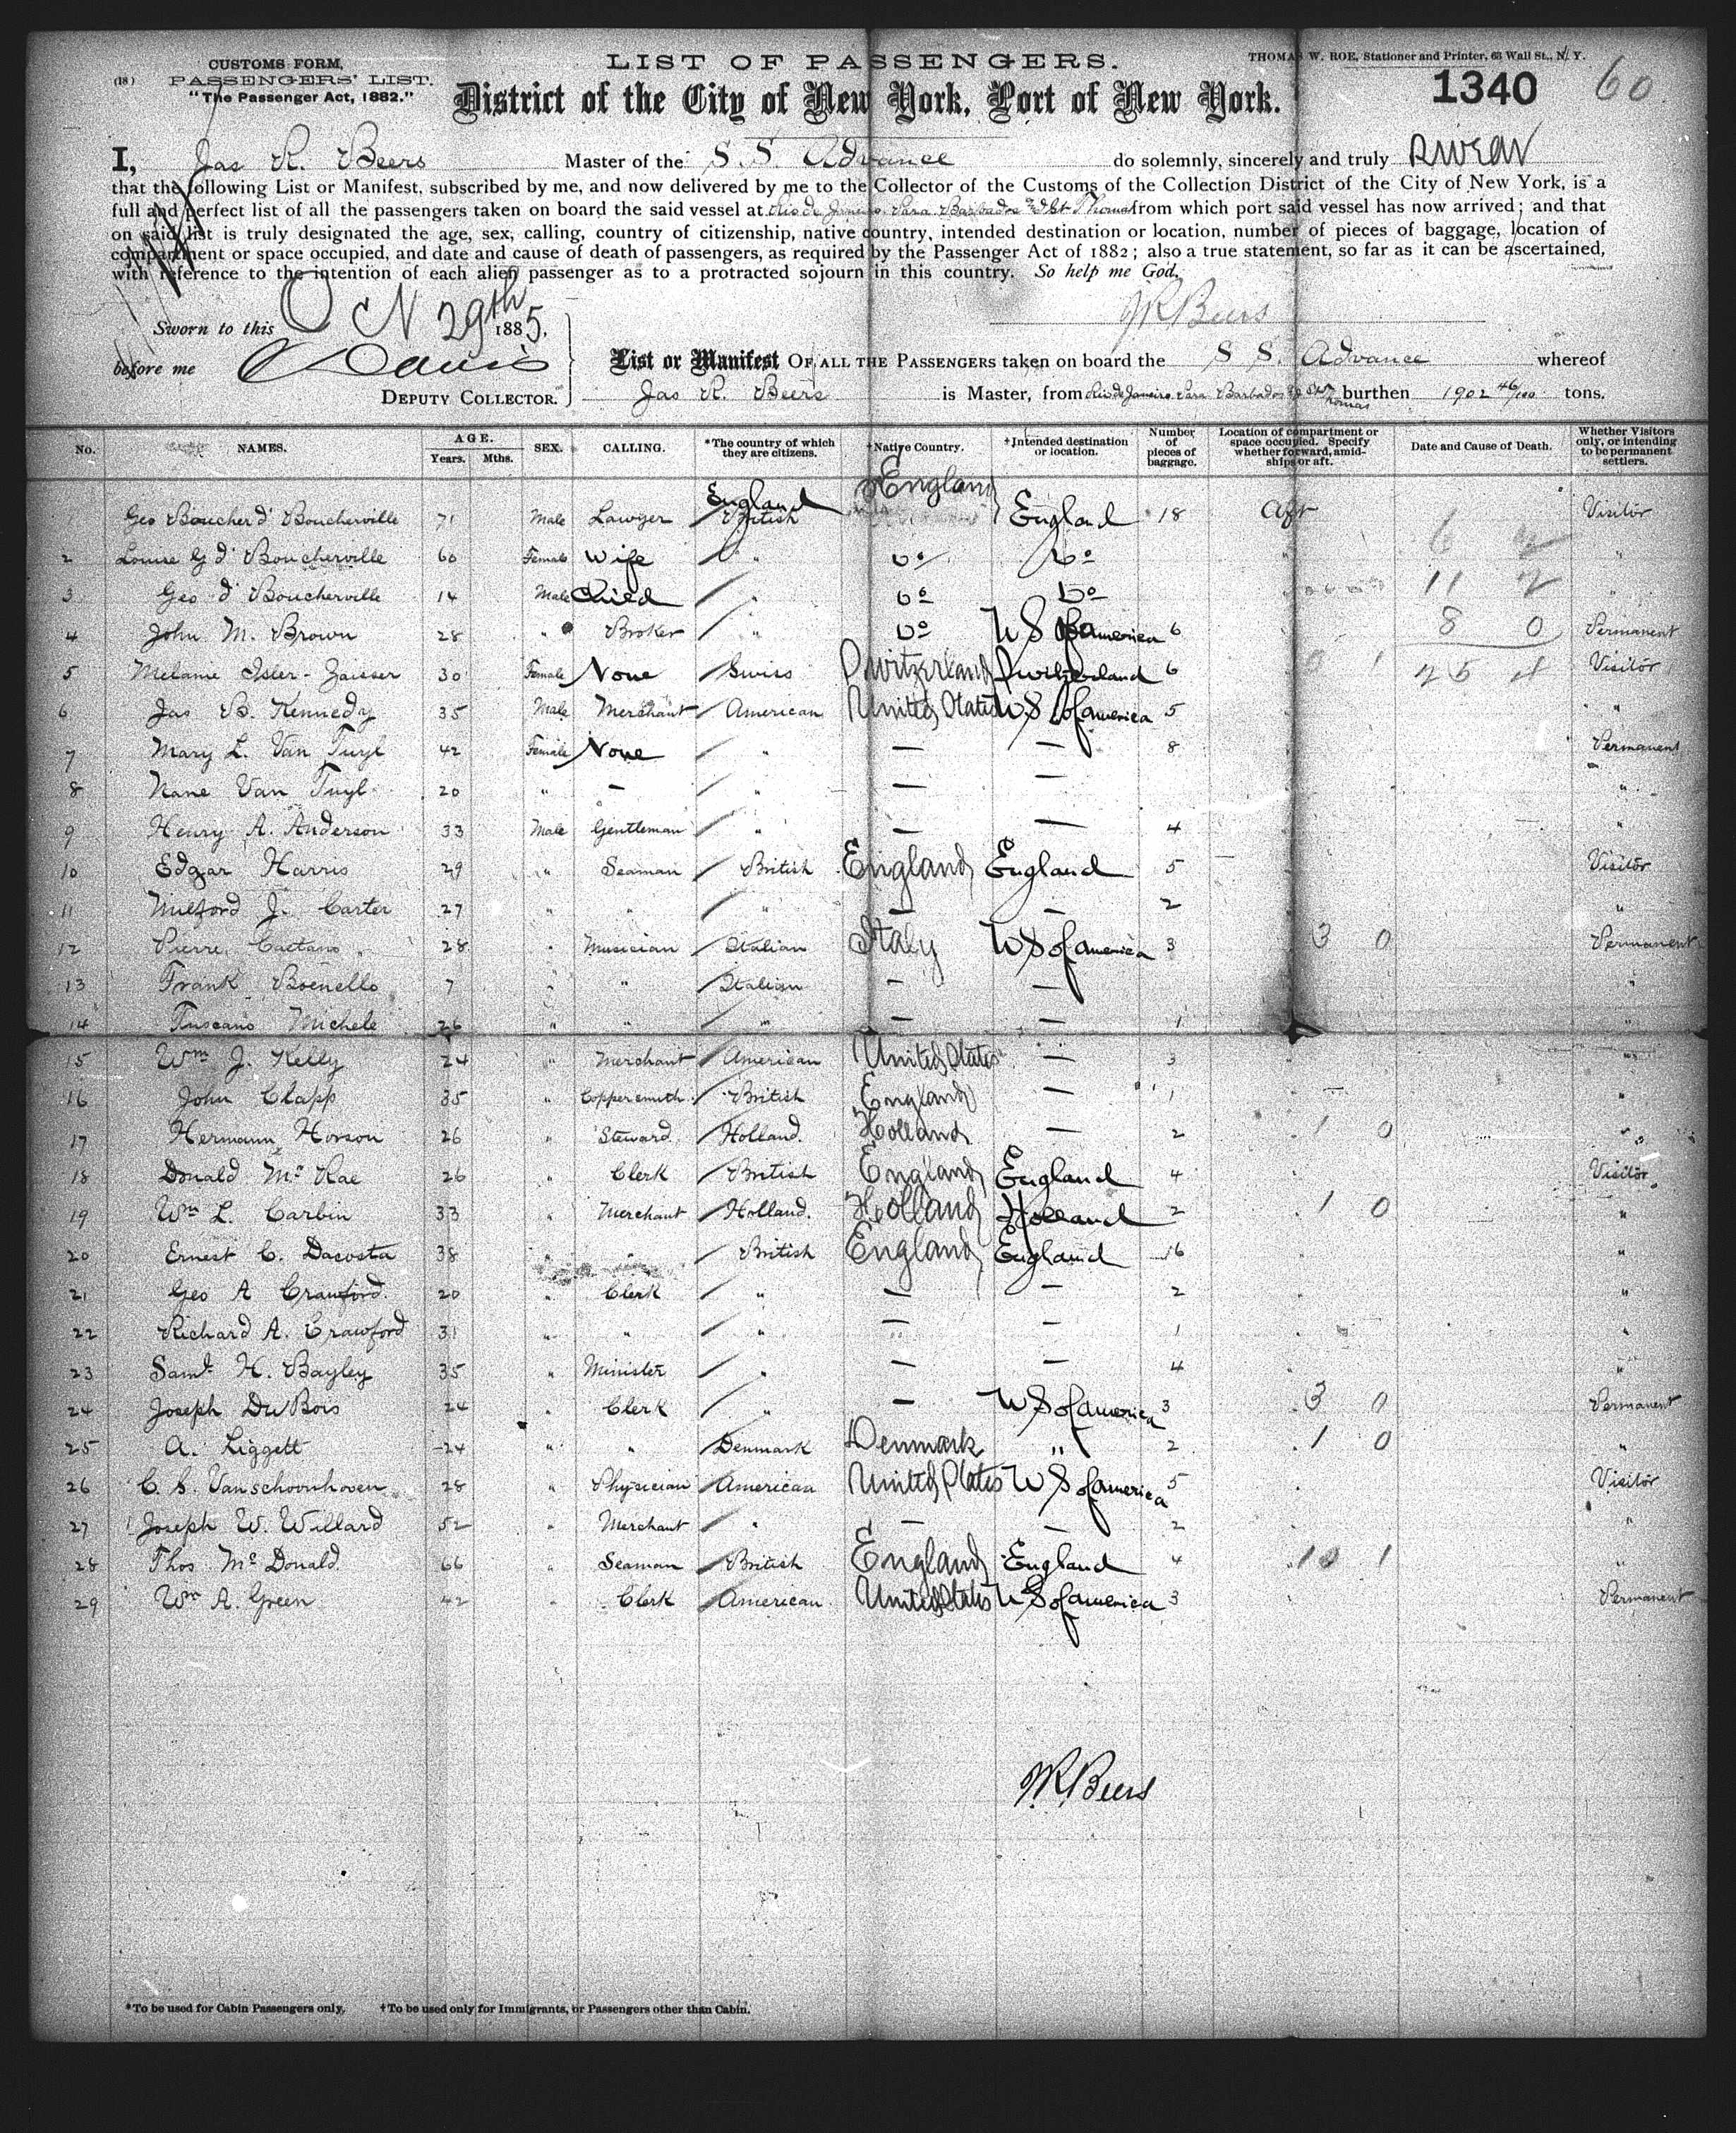 CUSTOMS FORM,
(18) PASSENGERS' LIST.
"The Passenger Act, 1882."
LIST OF PASSENGERS.
THOMAS W. ROE, Stationer and Printer, 63 Wall St., N. Y.
District of the City of New York, Port of New York.
1340 60
I, Jas R. Beers Master of the S. S. Advance do solemnly, sincerely and truly swear
that the following List or Manifest, subscribed by me, and now delivered by me to the Collector of the Customs of the Collection District of the City of New York, is a
full and perfect list of all the passengers taken on board the said vessel at Rio de Janeiro Para Barbados and St Thomas from which port said vessel has now arrived; and that
on said list is truly designated the age, sex, calling, country of citizenship, native country, intended destination or location, number of pieces of baggage, location of
compartment or space occupied, and date and cause of death of passengers, as required by the Passenger Act of 1882; also a true statement, so far as it can be ascertained,
with reference to the intention of each alien passenger as to a protracted sojourn in this country. So help me God.
JR Beers
Sworn to this 29th 1885,
before me Davis
DEPUTY COLLECTOR.
List or Manifest OF ALL THE PASSENGERS taken on board the S S. Advance whereof
Jas R. Beers is Master, from Rio de Janeiro Para Barbados & St Thomas burthen 1902 46/100 tons.
No. NAMES. AGE. Years. Mths. SEX. CALLING. *The country of which they are citizens. †Native Country. †Intended destination or location. Number of pieces of baggage. Location of compartment or space occupied. Specify whether forward, amidships or aft. Date and Cause of Death. Whether Visitors only, or intending to be permanent settlers.
Geo Boucher d' Boucherville 71 Male Lawyer England British England England 18 Aft Visitor
2 Louise G d' Boucherville 60 Female Wife " Do Do "
3 Geo d' Boucherville 14 Male Child " Do Do 11 2 "
4 John M. Brown 28 " Broker " Do U S of America 6 8 0 Permanent
5 Melanie Isler-Zaisser 30 Female None Swiss Switzerland Switzerland 6 25 4 Visitor
6 Jas B. Kennedy 35 Male Merchant American United States U S of America 5 "
7 Mary L. Van Tuyl 42 Female None " — — 8 Permanent
8 Nane Van Tuyl 20 " — " — — "
9 Henry A. Anderson 33 Male Gentleman " — — 4 "
10 Edgar Harris 29 " Seaman British England England 5 Visitor
11 Milford J. Carter 27 " " " — — 2 "
12 Pierre Caetano 28 " Musician Italian Italy U S of America 3 3 0 Permanent
13 Frank Boenello 7 " " Italian — — "
14 Tuscano Michele 26 " " " — — 1 "
15 Wm J. Kelly 24 " Merchant American United States — 3 "
16 John Clapp 35 " Coppersmith British England — 1 "
17 Hermann Horson 26 " Steward Holland. Holland — 2 1 0 "
18 Donald Mc Rae 26 " Clerk British England England 4 Visitor
19 Wm L. Carbin 33 " Merchant Holland. Holland Holland 2 1 0 "
20 Ernest C. Dacosta 38 " " British England England 16 "
21 Geo A Crawford. 20 " Clerk " — — 2 "
22 Richard A. Crawford 31 " " " — — 1 "
23 Saml. H. Bayley 35 " Minister " — — 4 "
24 Joseph DuBois 24 " Clerk " — U S of America 3 3 0 Permanent
25 A. Liggett 24 " " Denmark Denmark " 2 1 0 "
26 C. S. Vanschoonhoven 28 " Physician American United States U S of America 5 Visitor
27 Joseph W. Willard 52 " Merchant " — — 2 "
28 Thos Mc Donald 66 " Seaman British England England 4 10 1 "
29 Wm A. Green 42 " Clerk American United States U S of America 3 Permanent
JR Beers
*To be used for Cabin Passengers only. †To be used only for Immigrants, or Passengers other than Cabin.